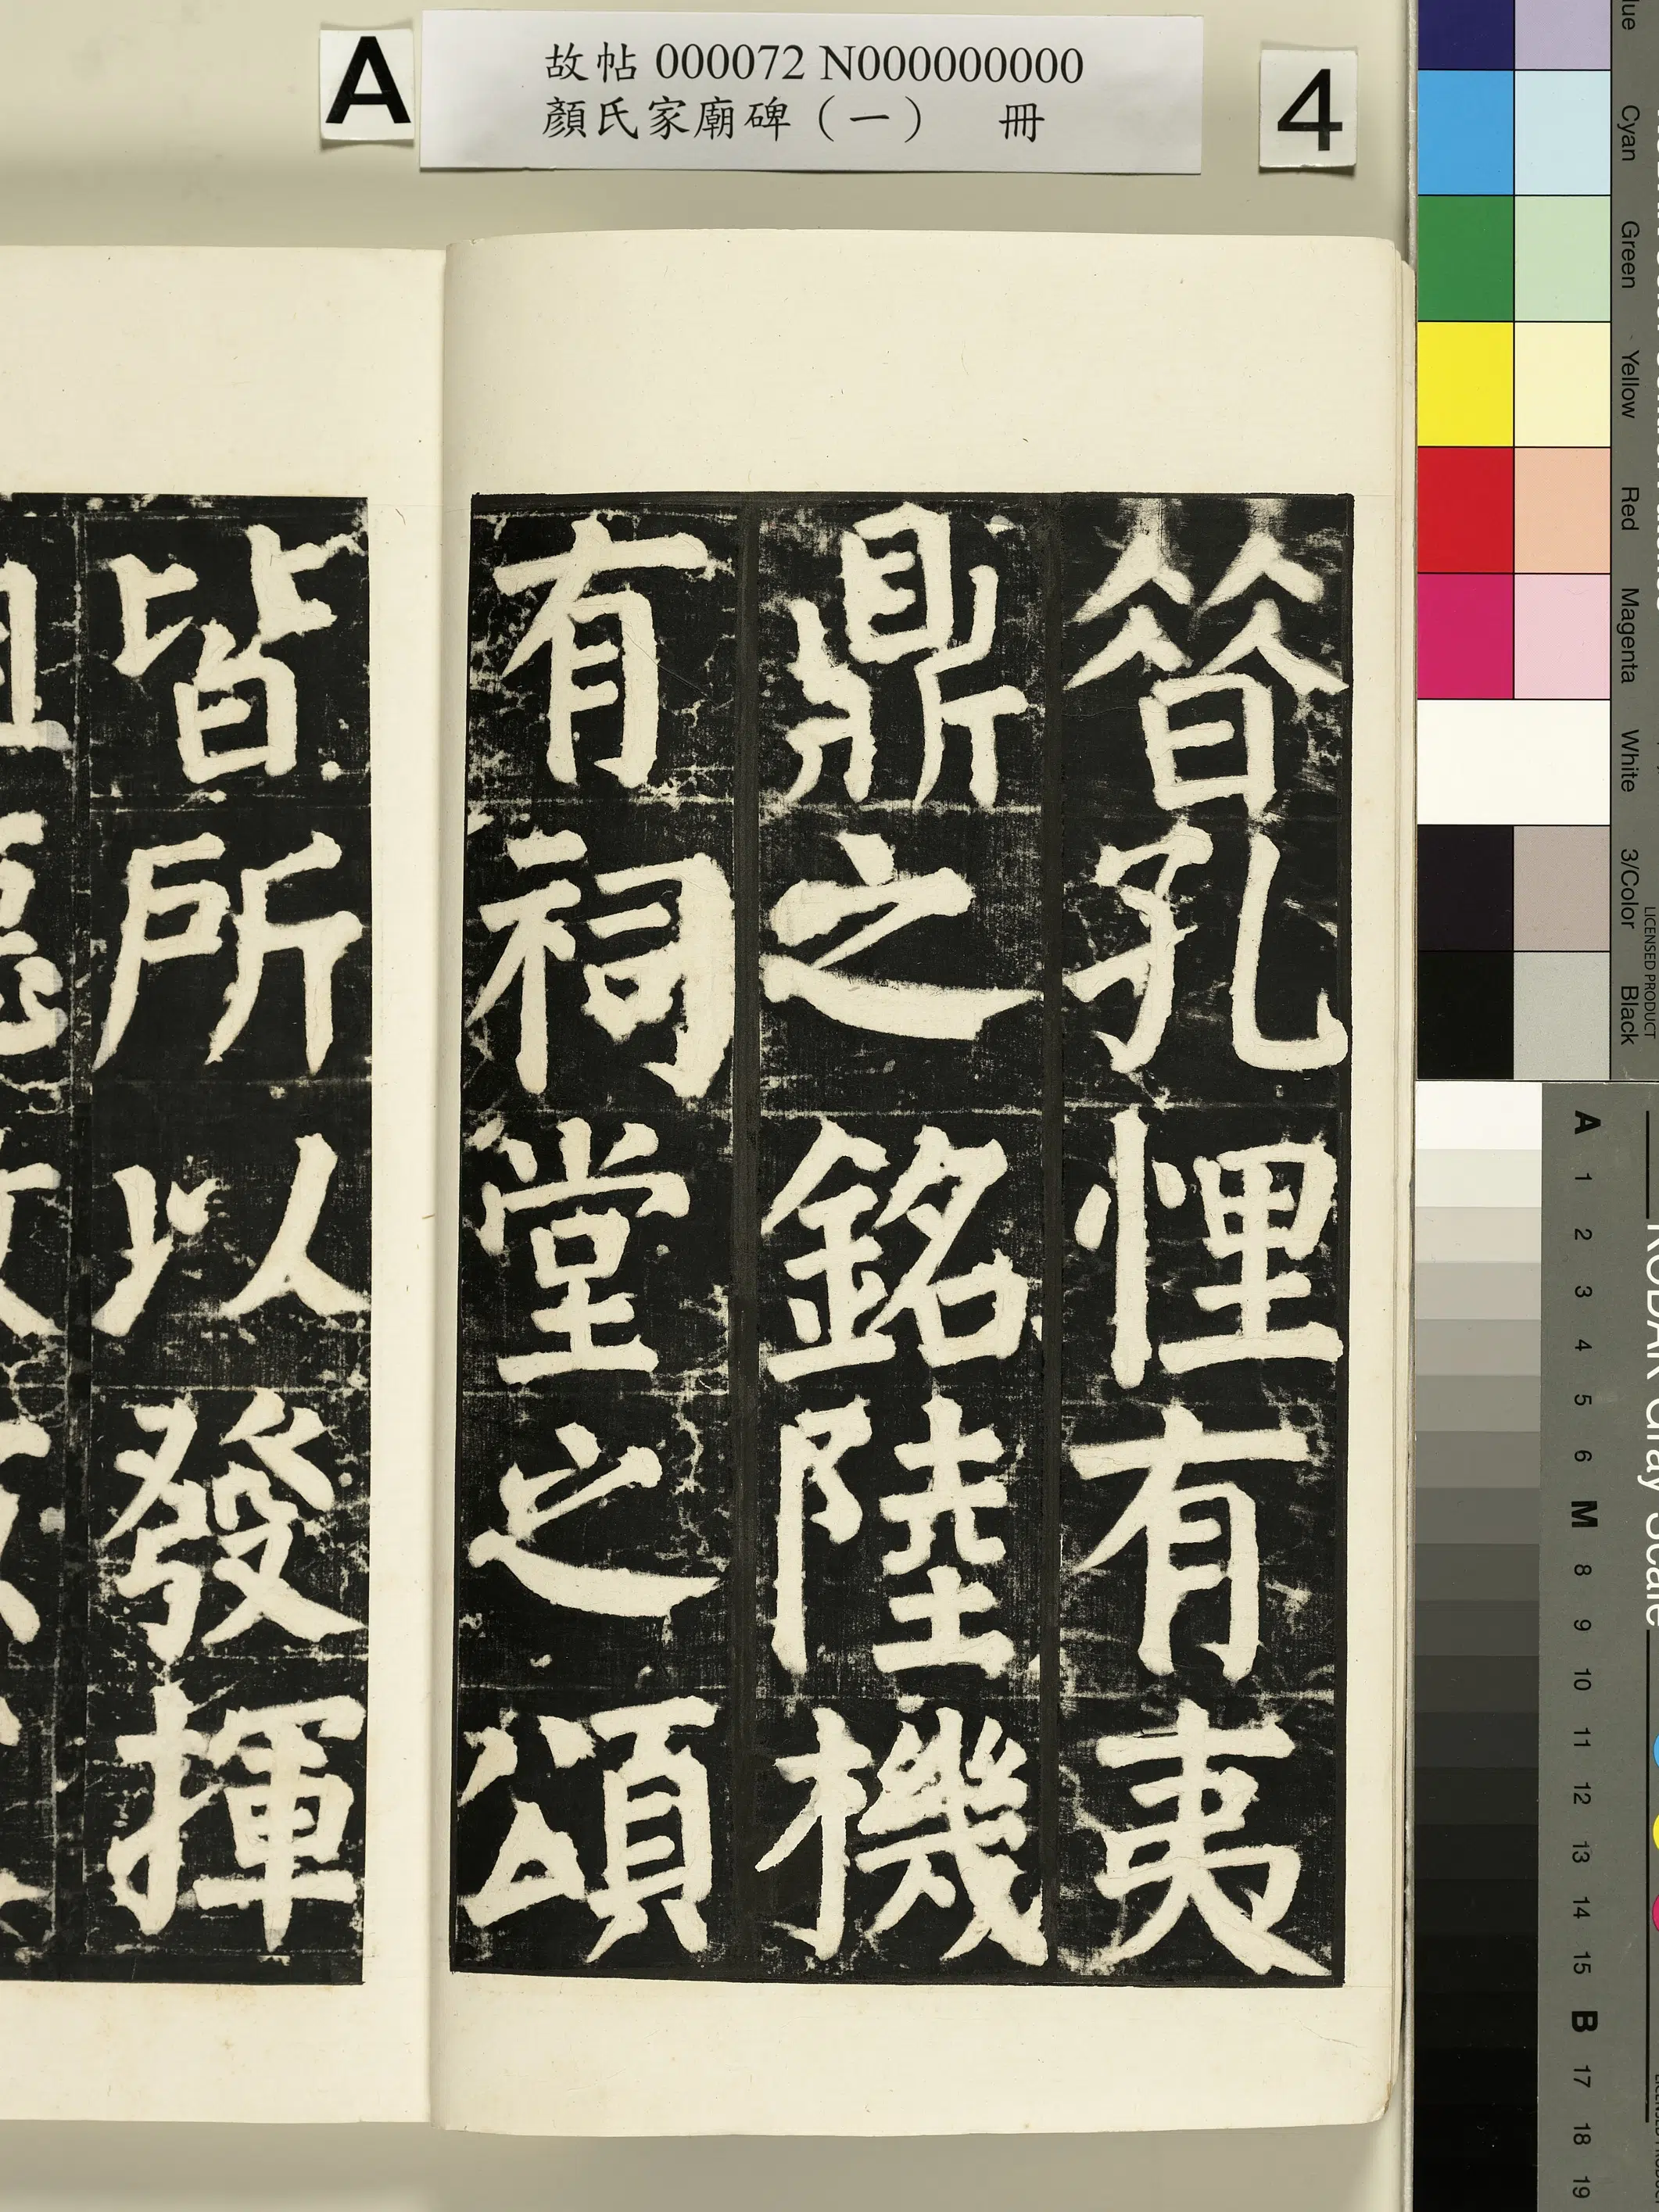 故帖 000072 N000000000
顏氏家廟碑（一） 冊
A
4
昔孔悝有夷
鼎之銘陸機
有祠堂之頌
皆所以發揮
Cyan
Green
Yellow
Red
Magenta
White
3/Color
Black
LICENSED PRODUCT
KODAK Gray Scale
A 1 2 3 4 5 6 M 8 9 10 11 12 13 14 15 B 17 18 19